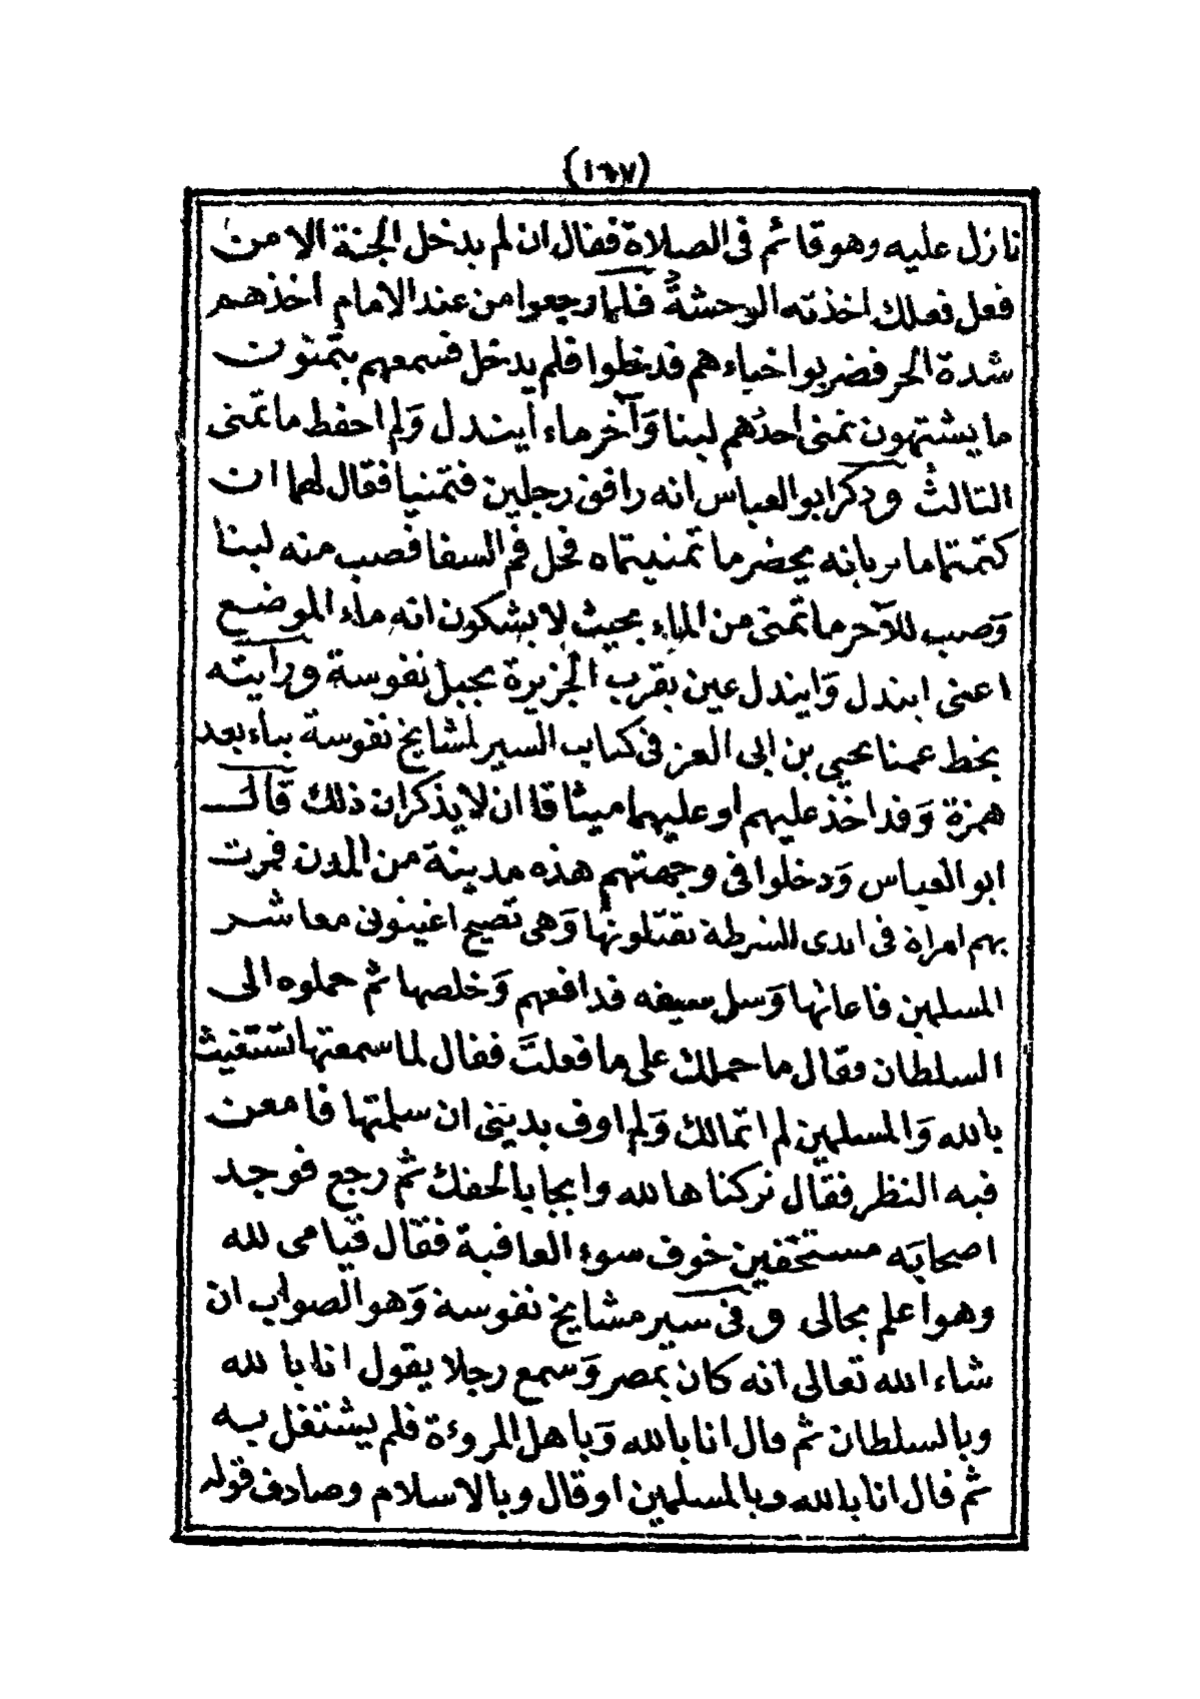 (١٦٧)
نازل عليه وهو قائم فى الصلاة فقال ان لم يدخل الجنة الا من
فعل فعلك اخذته الوحشة فلما رجعوا من عند الامام أخذهم
شدة الحر فضربوا خباءهم فدخلوا فلم يدخل فسمعهم يتمنون
ما يشتهون تمنى احدهم لبنا وَآخر ماء أيندل وَلم احفظ ما تمنى
الثالث وذكر ابو العباس انه رافق رجلين فتمنيا فقال لهما ان
كتمتما ما بربانه يحضر ما تمنيتماه فحل فم السقا فصب منه لبنا
وَصب للآخر ما تمنى من الماء بحيث لا يشكون انه ماء الموضع
اعنى ايندل وَايندل عين بقرب الجزيرة بجبل نفوسة ورأيته
بخط عمنا يحيى بن ابى العز فى كتاب السير لمشايخ نفوسة بياء بعد
همزة وَقد اخذ عليهم او عليهما ميثاقا ان لا يذكران ذلك قال
ابو العباس وَدخلوا فى وجهتهم هذه مدينة من المدن فمرت
بهم امراة فى ايدى الشرطة يقتلونها وَهى تصيح اغيثونى معاشر
المسلمين فاعانها وَسل سيفه فدافعهم وَخلصها ثم حملوه الى
السلطان فقال ما حملك على ما فعلتَ فقال لما سمعتها تستغيث
بالله وَالمسلمين لم اتمالك وَلم اوف بدينى ان سلمتها فامعن
فيه النظر فقال تركناها لله وايجابا لحقك ثم رجع فوجد
اصحابه مستخفين خوف سوء العاقبة فقال قيامى لله
وهو اعلم بحالى وفى سير مشايخ نفوسة وَهو الصواب ان
شاء الله تعالى انه كان بمصر وَسمع رجلا يقول انا بالله
وبالسلطان ثم قال انا بالله وَباهل المروءة فلم يشتغل به
ثم قال انا بالله وبالمسلمين او قال وبالاسلام وصادف قوله